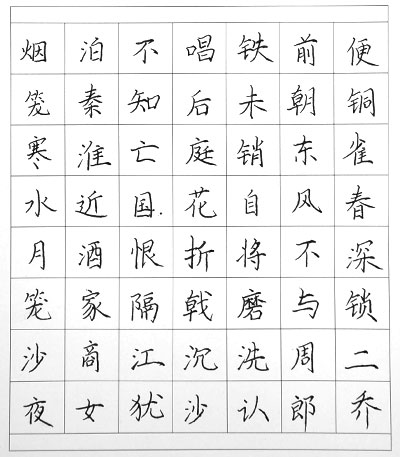 烟笼寒水月笼沙夜
泊秦淮近酒家商女
不知亡国恨隔江犹
唱后庭花折戟沉沙
铁未销自将磨洗认
前朝东风不与周郎
便铜雀春深锁二乔